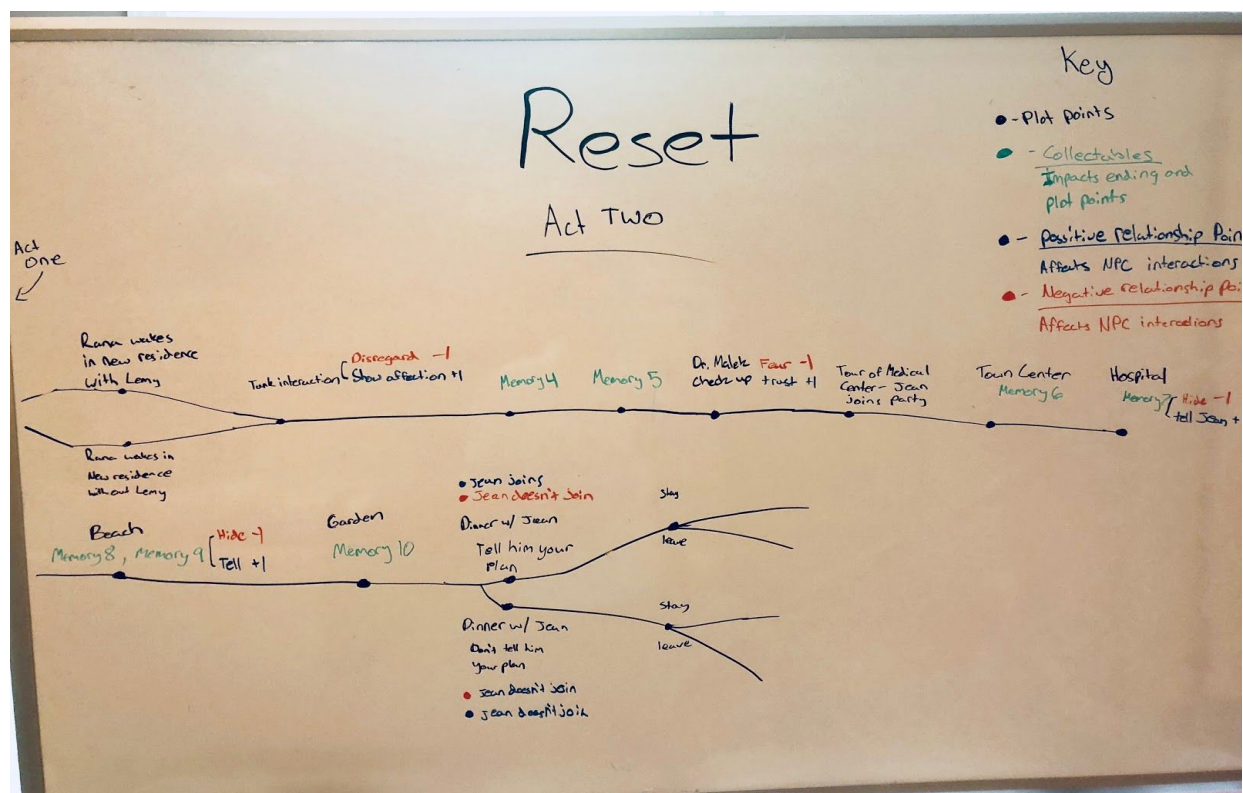 Reset
Act Two
Key
- Plot points
- Collectables
Impacts ending and
plot points
- Possitive relationship Poin
Affects NPC interactions
- Negative relationship Poi
Affects NPC interactions
Act
One
Rana wakes
in new residence
with Lemy
Rana wakes in
New residence
without Lemy
interaction
Disregard -1
Show affection +1
Memory 4
Memory 5
Dr. Malek Fear -1
check up trust +1
Tour of Medical
Center- Jean
joins party
Town Center
Memory 6
Hospital
Memory 7
Hide -1
tell Jean +
Beach
Memory 8, Memory 9
Hide -1
Tell +1
Garden
Memory 10
Jean joins
Jean doesn't join
Dinner w/ Jean
Tell him your
plan
Stay
leave
Dinner w/ Jean
Don't tell him
your plan
Jean doesn't join
Jean doesn't join
Stay
leave